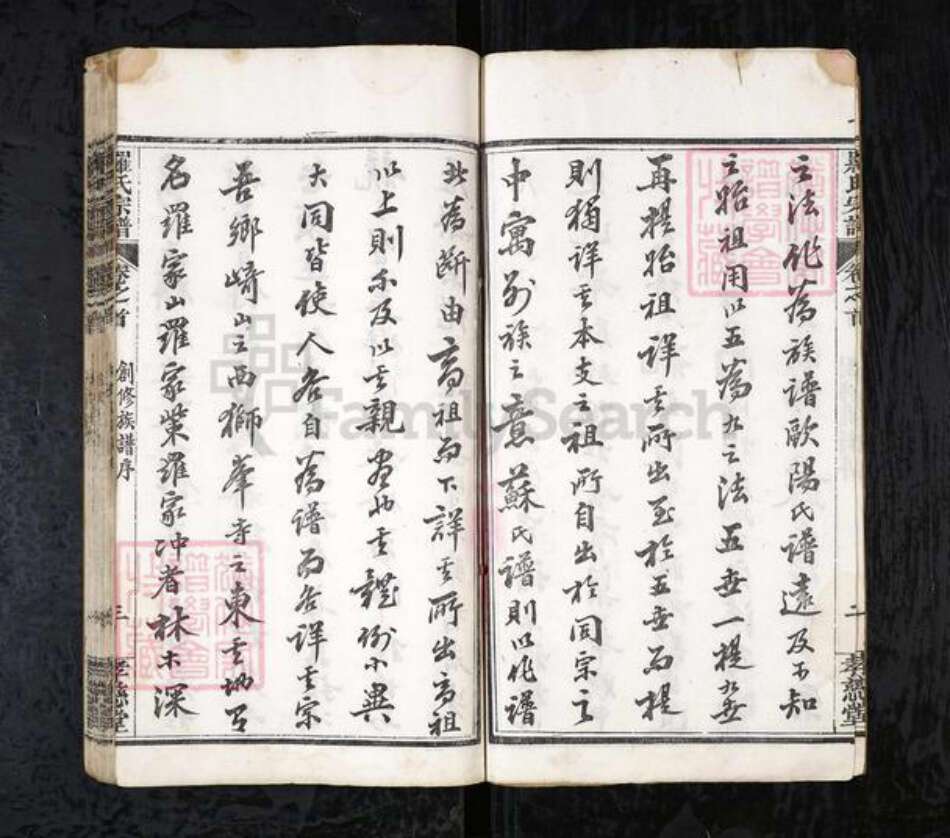 之法作為族譜歐陽氏譜遠及不知
之始祖用以五為九之法五世一提九世
再提始祖詳其所出至於五世而提
則猶詳其本支之祖所自出於同宗之
中寓別族之意蘇氏譜則以作譜
此為斷由高祖而下詳其所出高祖
以上則不及以其親盡也其體例小異
大同皆使人各自為譜而各詳其宗
吾鄉崎山之西獅峯寺之東其地有
名羅家山羅家柴羅家冲者林木深
羅氏宗譜
卷之首
創修族譜序
三
孝慈堂
羅氏宗譜
卷之首
二
孝慈堂
FamilySearch